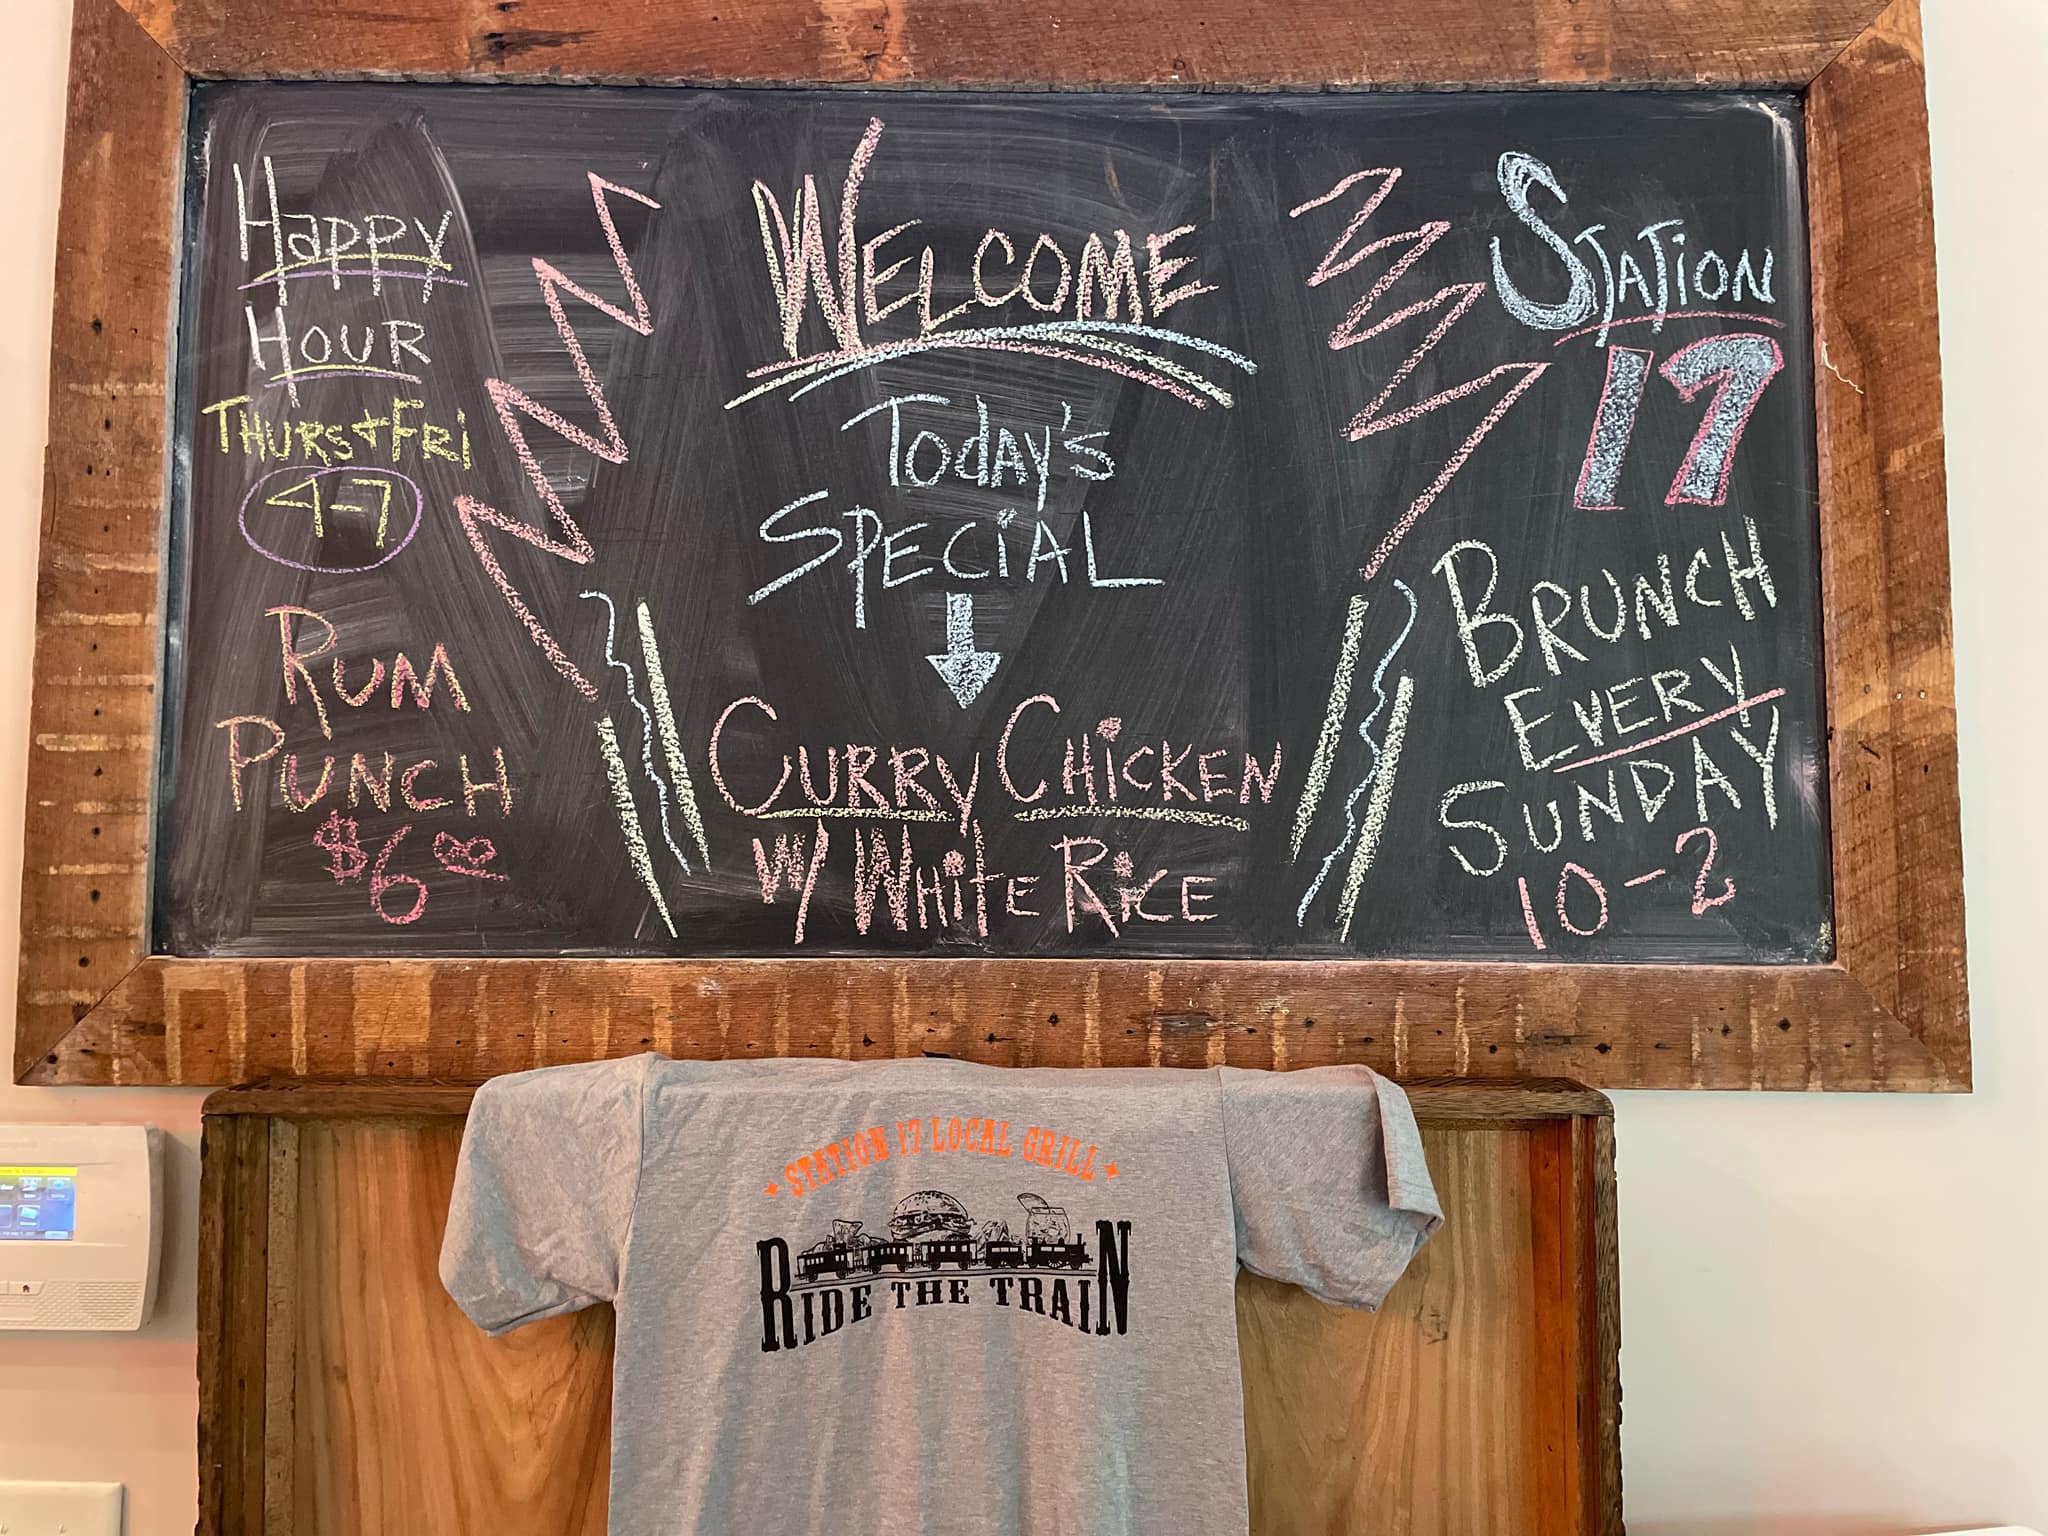 Happy
Hour
Thurs + Fri
4-7
Rum
Punch
$6 00
Welcome
Today's
Special
Curry Chicken
w/ White Rice
Station
17
Brunch
Every
Sunday
10-2
STATION 17 LOCAL GRILL
RIDE THE TRAIN